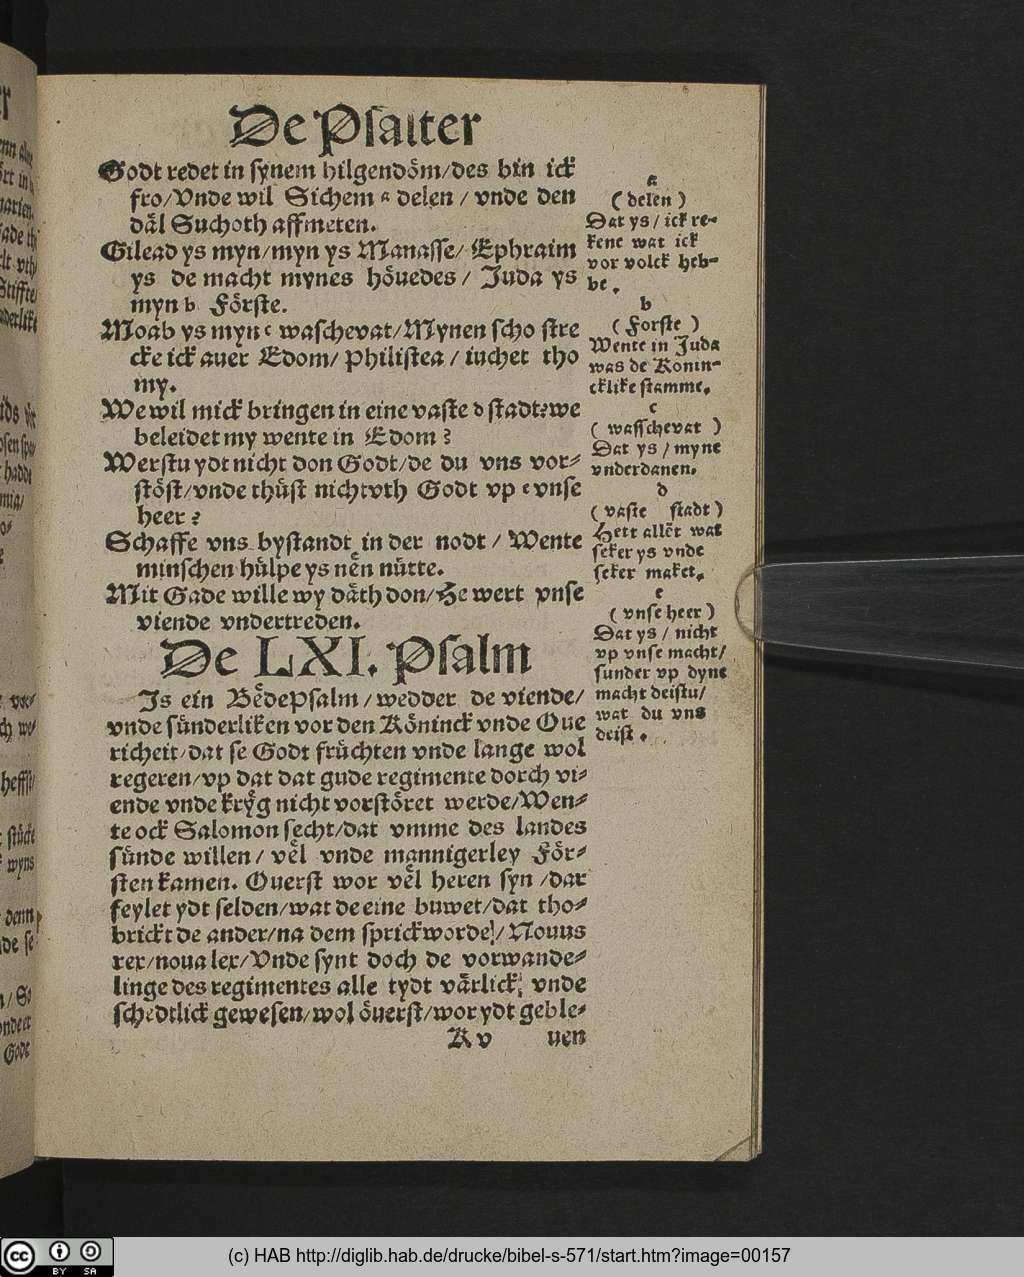 De Psalter
Godt redet in synem hilgendöm/des bin ick
fro/Vnde wil Sichem a delen / vnde den
däl Suchoth affmeten.
Gilead ys myn/myn ys Manasse/ Ephraim
ys de macht mynes höuedes/ Juda ys
myn b Förste.
Moab ys myn c waschevat/Mynen scho stre
cke ick auer Edom/ Philistea / iuchet tho
my.
We wil mick bringen in eine vaste d stadt? we
beleidet my wente in Edom?
Werstu ydt nicht don Godt/de du vns vor-
stöst/vnde thüst nicht vth Godt vp e vnse
heer?
Schaffe vns bystandt in der nodt / Wente
minschen hülpe ys nën nütte.
Mit Gade wille wy däth don/He wert vnse
viende vndertreden.
a
( delen )
Dat ys / ick re-
kene wat ick
vor volck heb-
be.
b
( Forste )
Wente in Juda
was de Konin-
cklike stamme.
c
( wasschevat )
Dat ys / myne
vnderdanen.
d
( vaste stadt )
Hett allër wat
seker ys vnde
seker maket.
e
( vnse heer )
Dat ys / nicht
vp vnse macht/
sunder vp dyne
macht deistu/
wat du vns
deist.
De LXI. Psalm
Is ein BëdePsalm/wedder de viende/
vnde sünderliken vor den Köninck vnde Oue
richeit/dat se Godt früchten vnde lange wol
regeren/vp dat dat gude regimente dorch vi-
ende vnde kryg nicht vorstöret werde/Wen-
te ock Salomon secht/dat vmme des landes
sünde willen/ vël vnde mannigerley För-
sten kamen. Ouerst wor vël heren syn /dar
feylet ydt selden/wat de eine buwet/dat tho-
brickt de ander/na dem sprickworde/ Nouus
rex/noua lex/Vnde synt doch de vorwande-
linge des regimentes alle tydt värlick vnde
schedtlick gewesen/wol öuerst/wor ydt geble-
K v uen
(c) HAB http://diglib.hab.de/drucke/bibel-s-571/start.htm?image=00157
cc BY SA